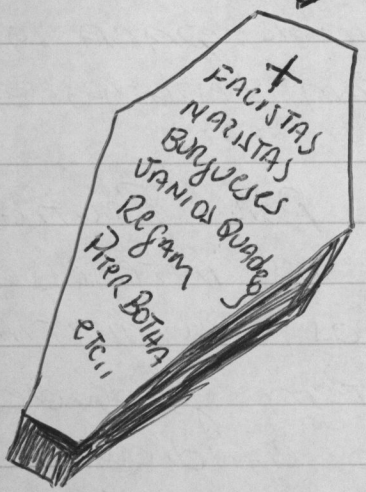 +
FACISTAS
NAZISTAS
BURGUESES
JANIOS QUADROS
REGAM
PITER BOTHA
ETC,,